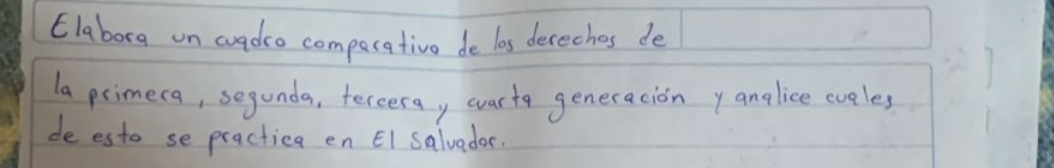 Elabora un cuadro comparativo de los derechos de
la primera, segunda, tercera y cuarta generación y analice cuales
de esto se practica en El Salvador.